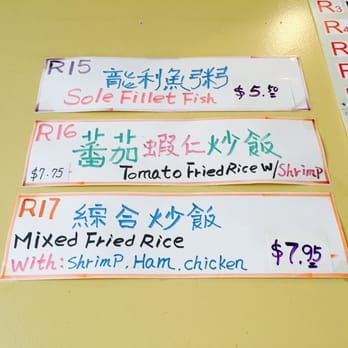 R15 龍利魚粥
Sole Fillet Fish $5.50
R16 蕃茄蝦仁炒飯
$7.75 Tomato Fried Rice w/ Shrimp
R17 綜合炒飯
Mixed Fried Rice
With: Shrimp. Ham. chicken $7.95
R3
R4